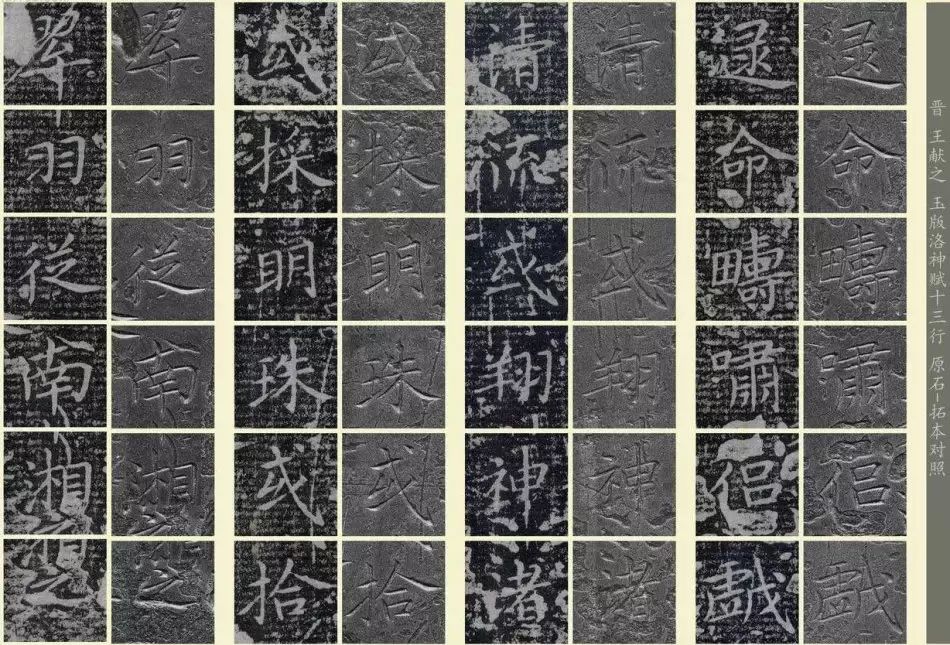 晋 王献之 玉版洛神赋十三行 原石-拓本对照
逯命疇嘯侶戲
逯命疇嘯侶戲
清流或翔神渚
清流或翔神渚
或採明珠或拾
或採明珠或拾
翠羽從南湘之
翠羽從南湘之